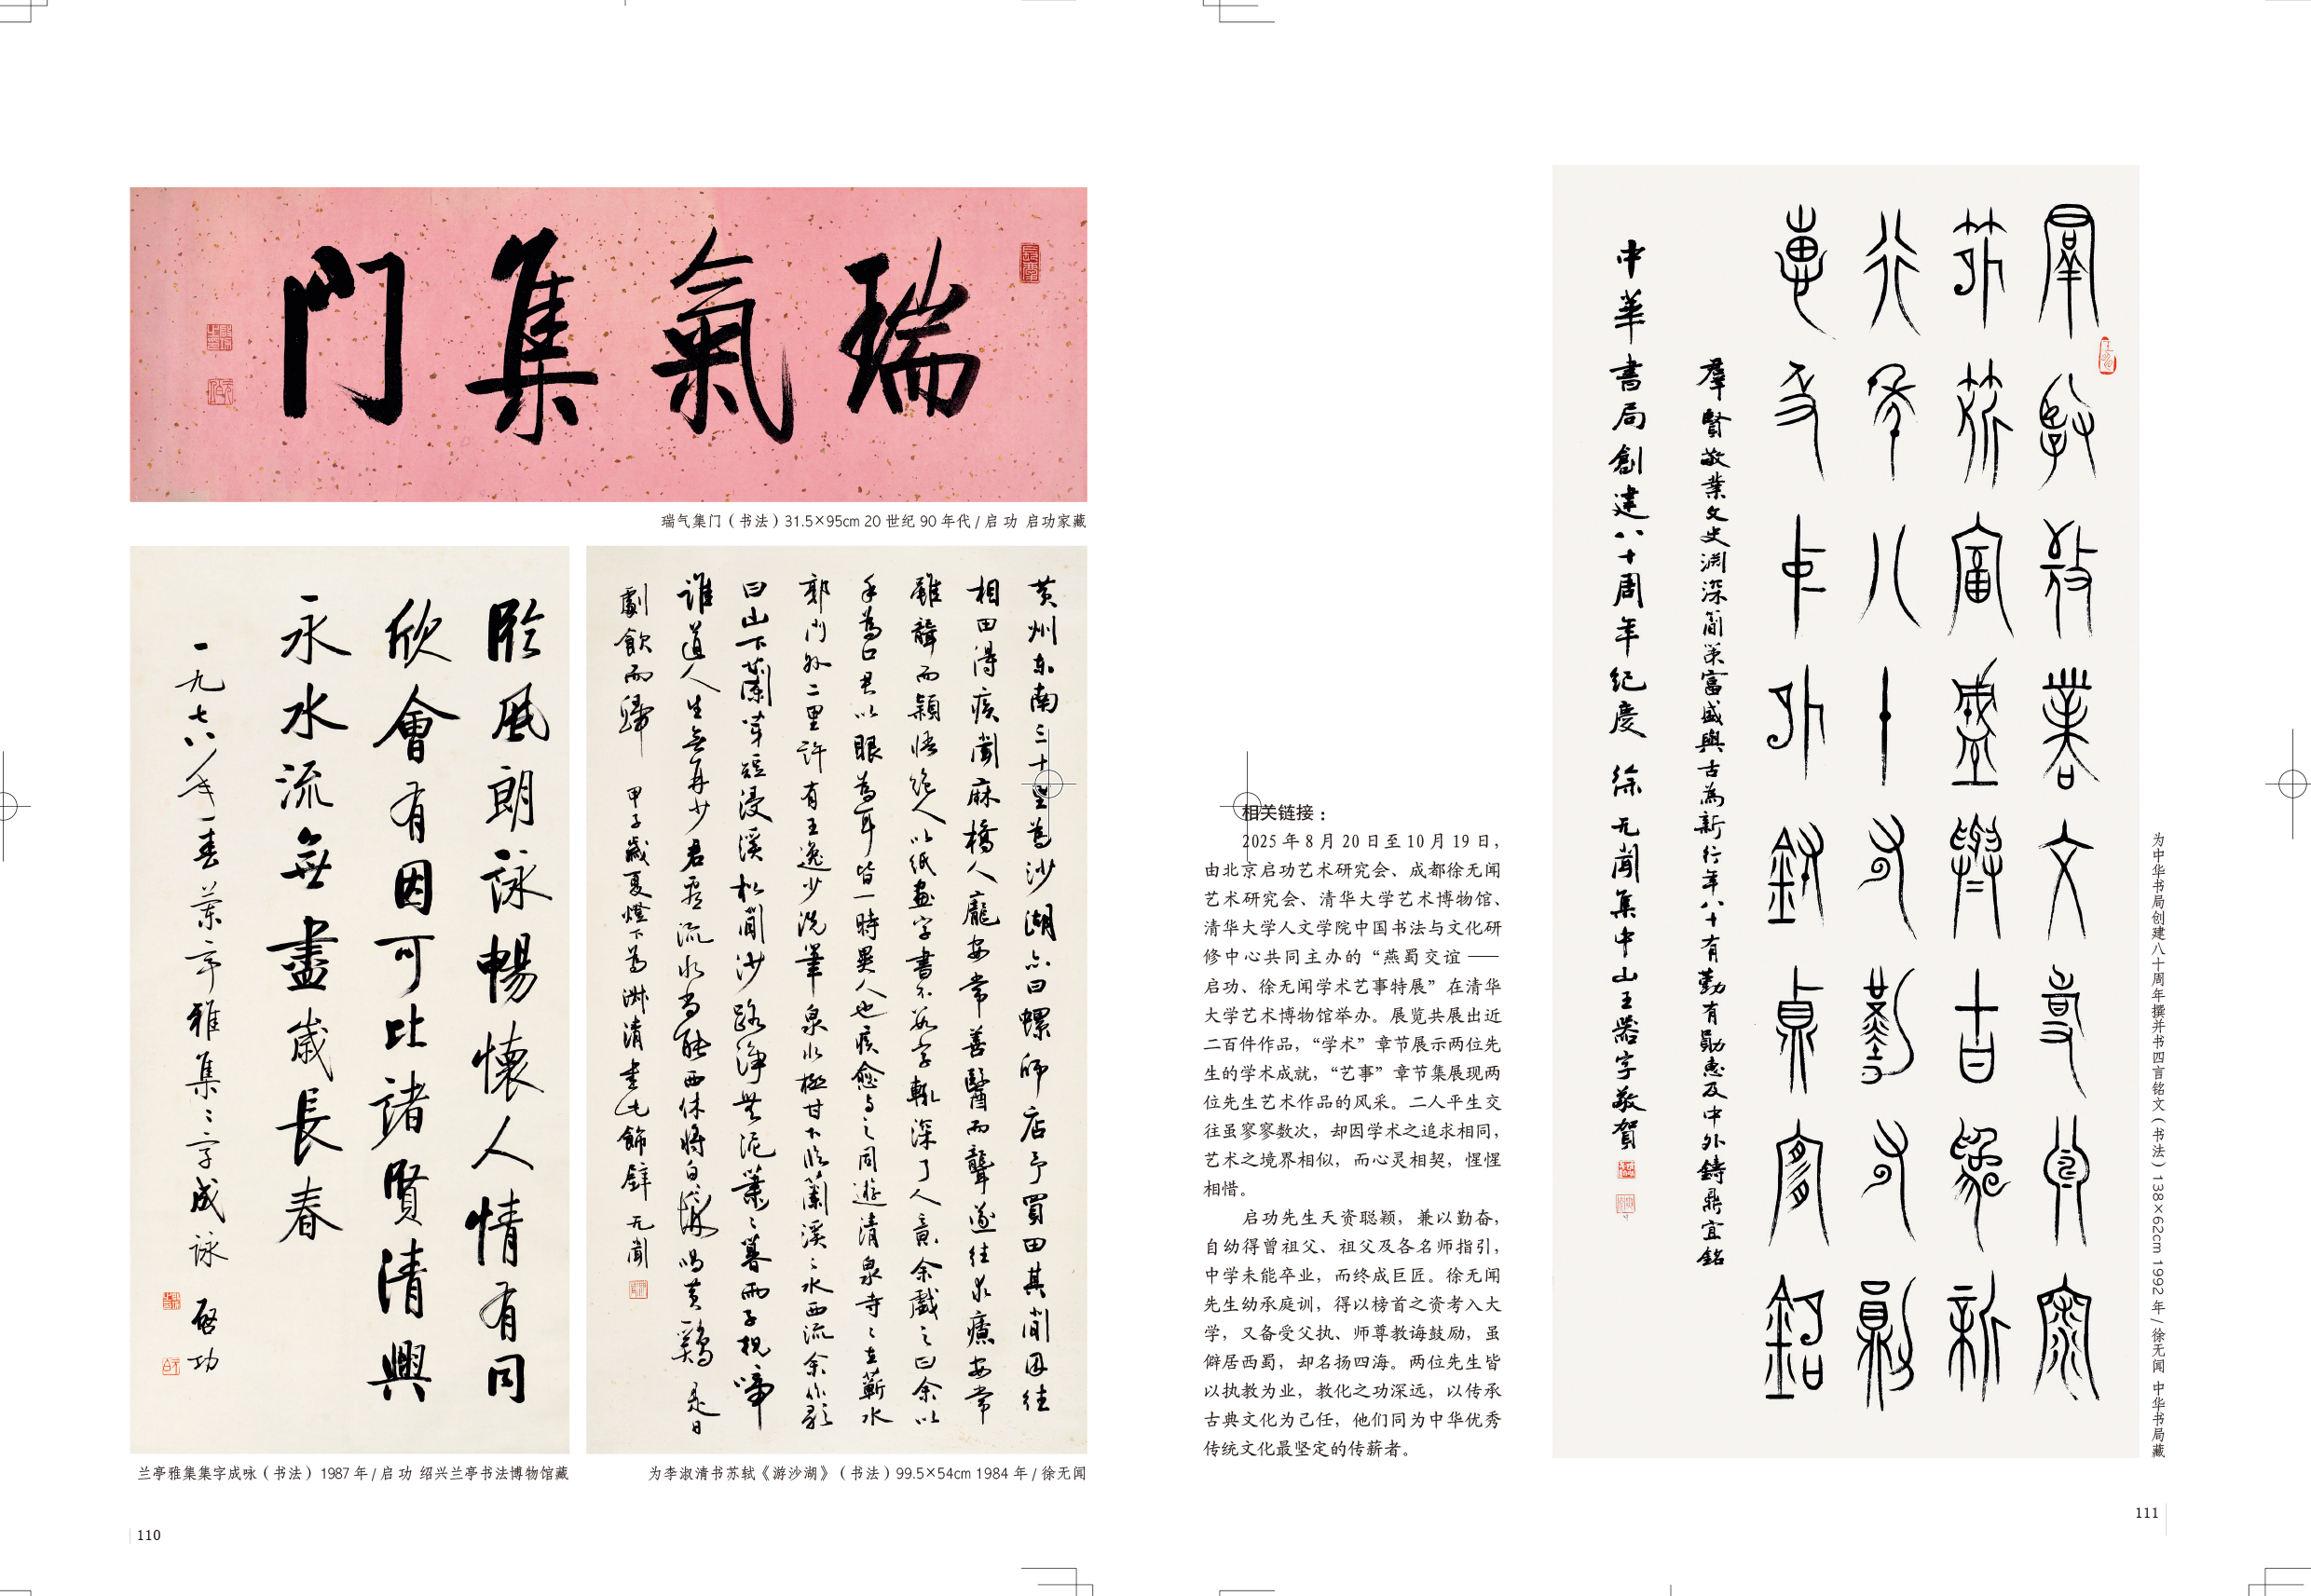 瑞氣集門
瑞气集门（书法）31.5×95cm 20 世纪 90 年代 / 启 功 启功家藏
臨風朗詠暢懷人情有同
欣會有因可比諸賢清興
永水流無盡歲長春
一九七八年春蘭亭雅集〻字成詠 啓功
兰亭雅集集字成咏（书法）1987 年 / 启 功 绍兴兰亭书法博物馆藏
黄州東南三十里為沙湖亦曰螺師店予買田其間因往
相田得疾聞麻橋人龐安常善醫而聾遂往求療安常
雖聾而穎悟絕人以紙畫字書不數字輒深了人意余戲之曰余以
手為口君以眼為耳皆一時異人也疾愈與之同遊清泉寺〻在蘄水
郭門外二里許有王逸少洗筆泉水極甘下臨蘭溪〻水西流余作歌
曰山下蘭芽短浸溪松間沙路淨無泥蕭〻暮雨子規啼
誰道人生無再少君看流水尚能西休將白髮唱黄鷄 是日
劇飲而歸 甲子歲夏燈下為淑清書此飾壁 无聞
为李淑清书苏轼《游沙湖》（书法）99.5×54cm 1984 年 / 徐无闻
110
相关链接：
2025 年 8 月 20 日至 10 月 19 日，
由北京启功艺术研究会、成都徐无闻
艺术研究会、清华大学艺术博物馆、
清华大学人文学院中国书法与文化研
修中心共同主办的“燕蜀交谊 ——
启功、徐无闻学术艺事特展”在清华
大学艺术博物馆举办。展览共展出近
二百件作品，“学术”章节展示两位先
生的学术成就，“艺事”章节集展现两
位先生艺术作品的风采。二人平生交
往虽寥寥数次，却因学术之追求相同，
艺术之境界相似，而心灵相契，惺惺
相惜。
启功先生天资聪颖，兼以勤奋，
自幼得曾祖父、祖父及各名师指引，
中学未能卒业，而终成巨匠。徐无闻
先生幼承庭训，得以榜首之资考入大
学，又备受父执、师尊教诲鼓励，虽
僻居西蜀，却名扬四海。两位先生皆
以执教为业，教化之功深远，以传承
古典文化为己任，他们同为中华优秀
传统文化最坚定的传薪者。
群賢敬業文史淵深
簡策富盛與古為新
行年八十有勤有勛
惠及中外鑄鼎宜銘
羣賢敬業文史淵深簡策富盛與古為新行年八十有勤有勛惠及中外鑄鼎宜銘
中華書局創建八十周年紀慶 徐无聞集中山王器字敬賀
为中华书局创建八十周年撰并书四言铭文（书法）138×62cm 1992 年 / 徐无闻 中华书局藏
111